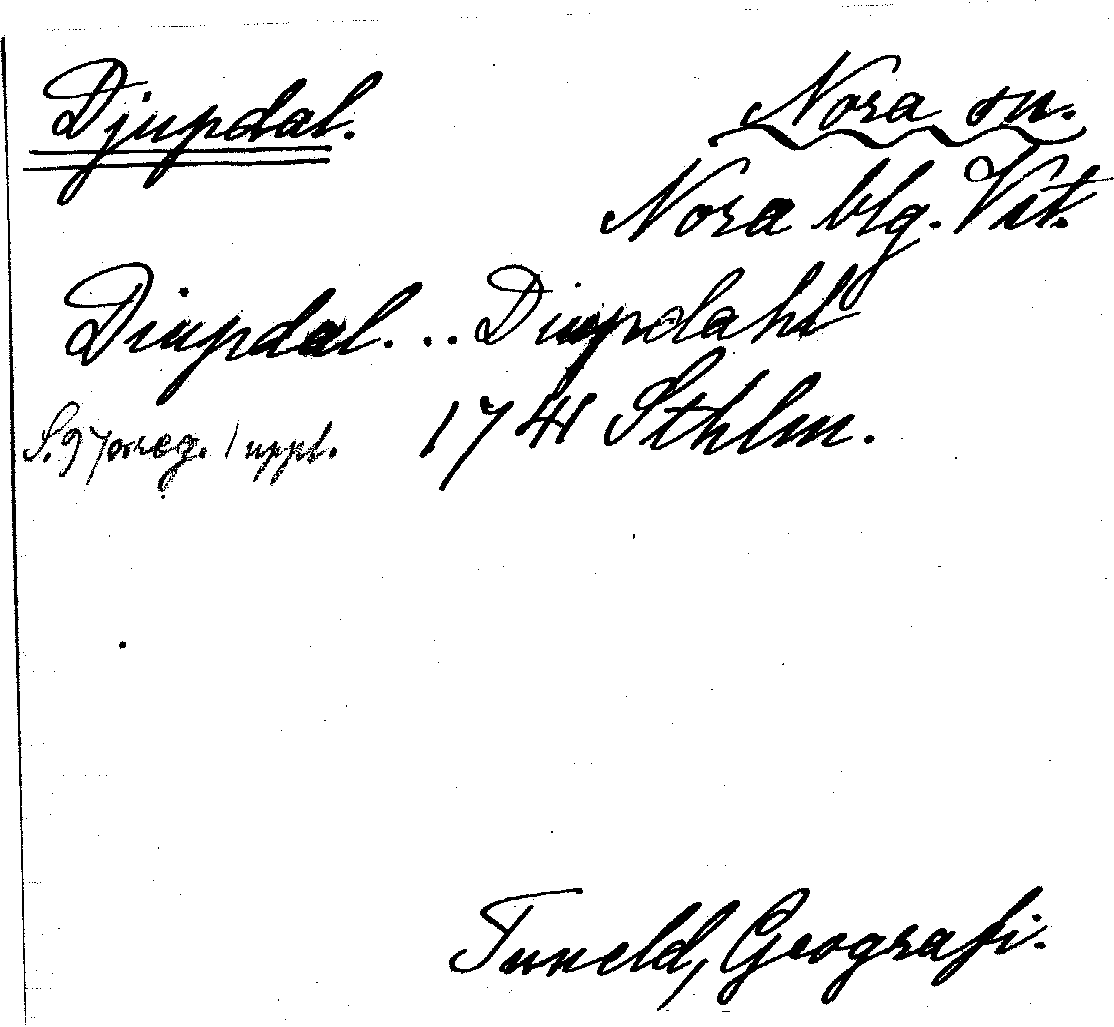 Djupdal.
Nora sn.
Nora blg. Vst.
Diupdal... Diupdahl
S. 97 oreg. 1 uppl. 1741 Sthlm.
Tuneld, Geografi.